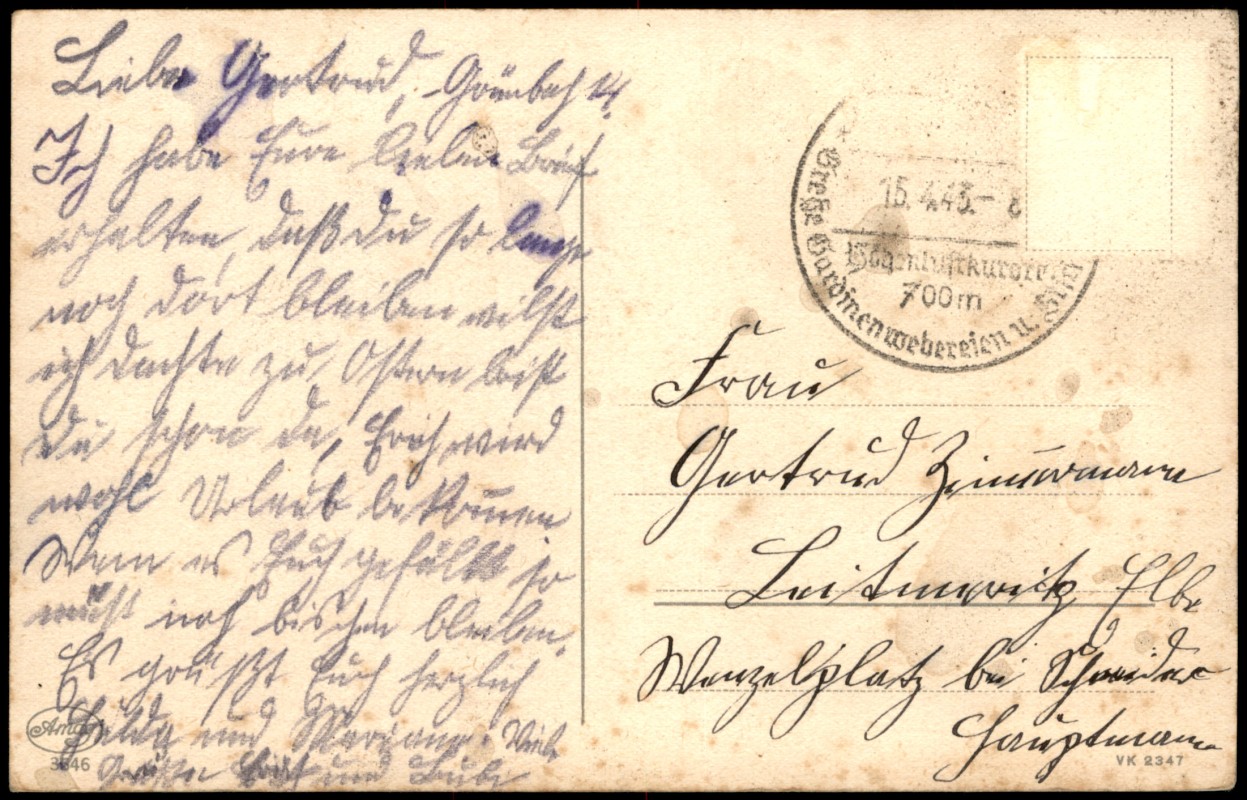 Liebe Gertrud, Grünbach 14.
Ich habe Eure lieben Brief
erhalten, daß du so lange
noch dort bleiben wilst
ich dachte zu Ostern bist
du schon da, Erich wird
wohl Urlaub bekommen
Wenn es Euch gefällt so
müßt noch bischen bleiben.
Es grüßt Euch herzlich
Hulda und Mariann. Viele
Grüße und
15.4.43.- 8
Höhenluftkurort
700m
Große Gardinenwebereien u.
Frau
Gertrud Zimmermann
Leitmeritz Elbe
Wenzelplatz bei Schneider
Hauptmann
3846
VK 2347